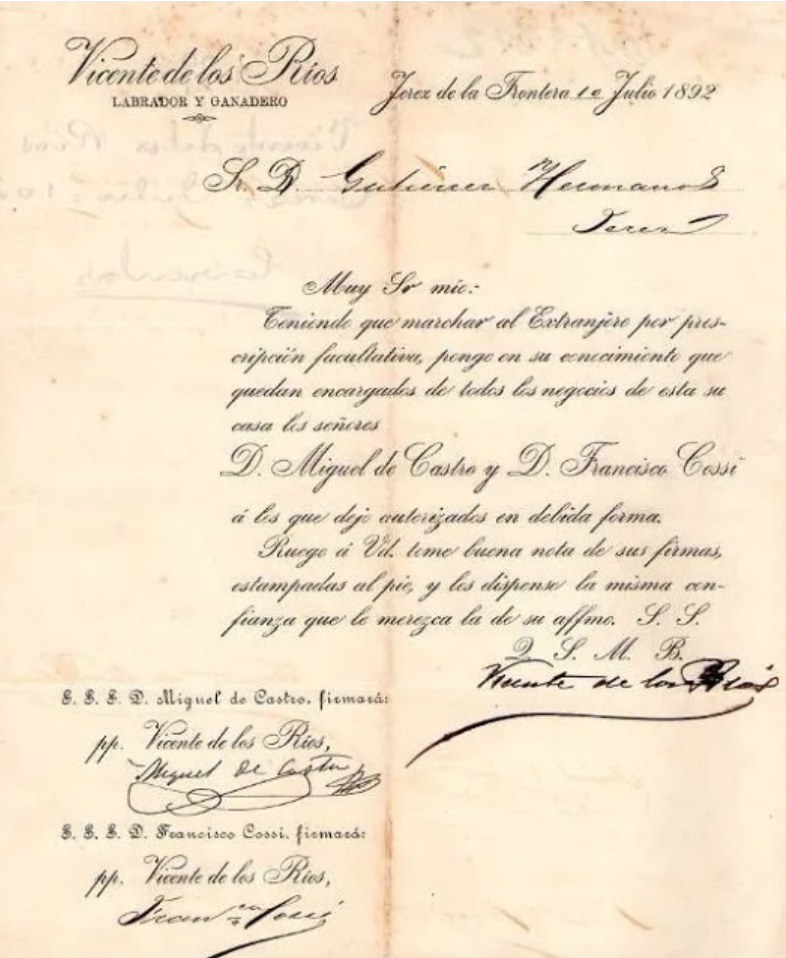 Vicente de los Ríos
LABRADOR Y GANADERO
Jerez de la Frontera 10 Julio 1892
Sr. D. Gutierrez Hermanos
Jerez
Muy Sr mio:
Teniendo que marchar al Extranjero por pres-
cripción facultativa, pongo en su conocimiento que
quedan encargados de todos los negocios de esta su
casa los señores
D. Miguel de Castro y D. Francisco Cossi
á los que dejo autorizados en debida forma.
Ruego á Vd. tome buena nota de sus firmas,
estampadas al pie, y les dispense la misma con-
fianza que le merezca la de su affmo. S. S.
Q. S. M. B.
Vicente de los Rios
S. S. S. D. Miguel de Castro, firmará:
pp. Vicente de los Ríos,
Miguel de Castro
S. S. S. D. Francisco Cossi, firmará:
pp. Vicente de los Ríos,
Fran.co Cossi